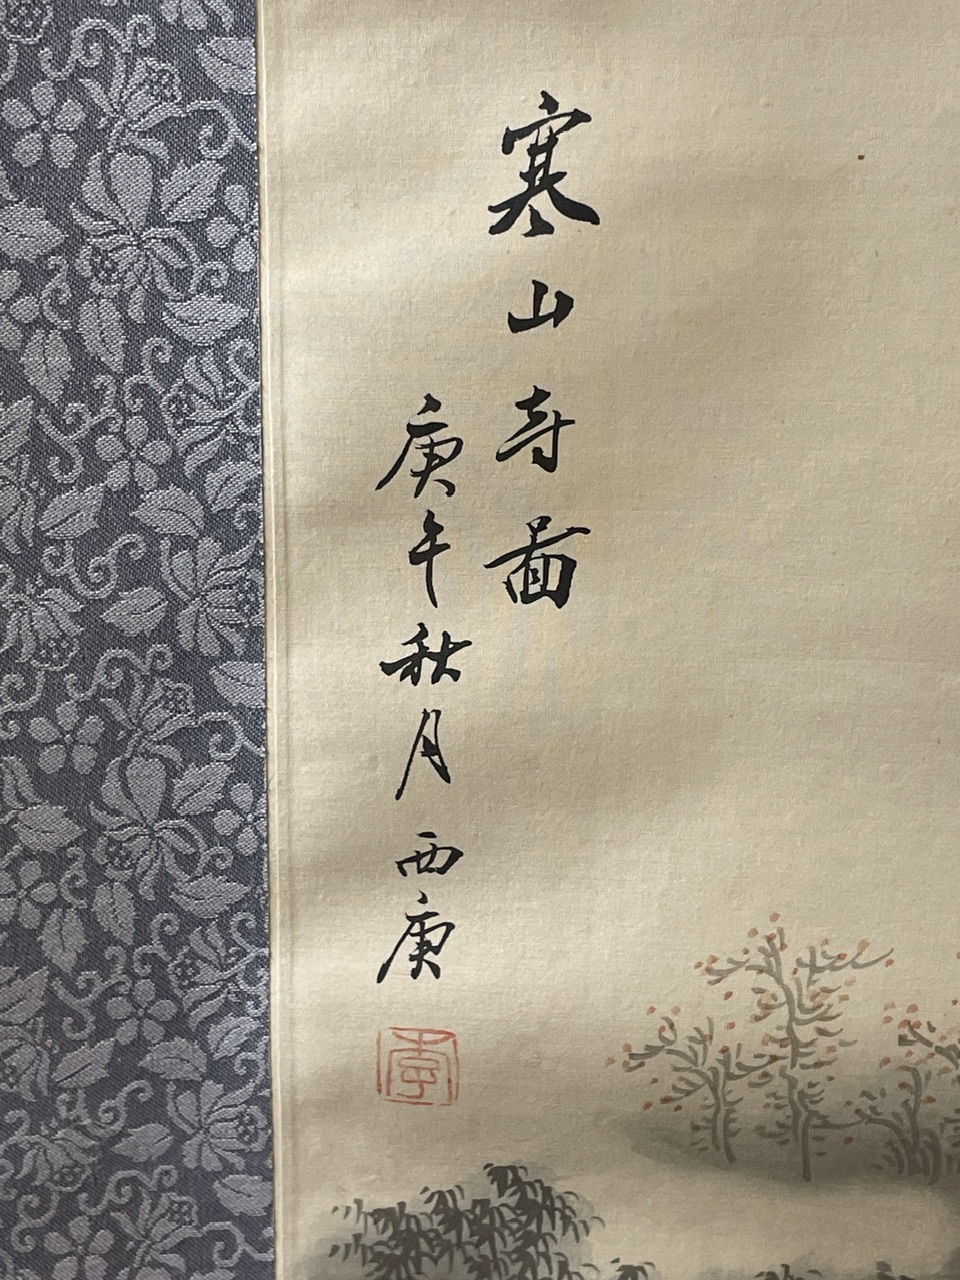 寒山寺圖
庚午秋月 西庚
李